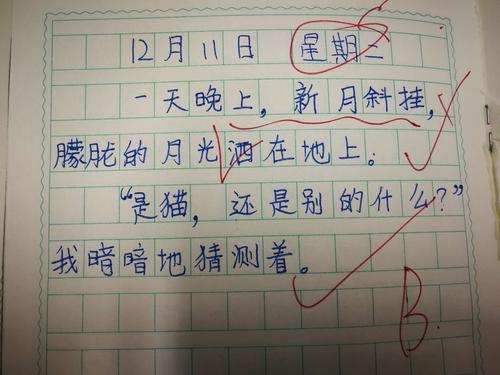 12月11日 星期二
一天晚上，新月斜挂，
朦胧的月光洒在地上。
“是猫，还是别的什么？”
我暗暗地猜测着。
B